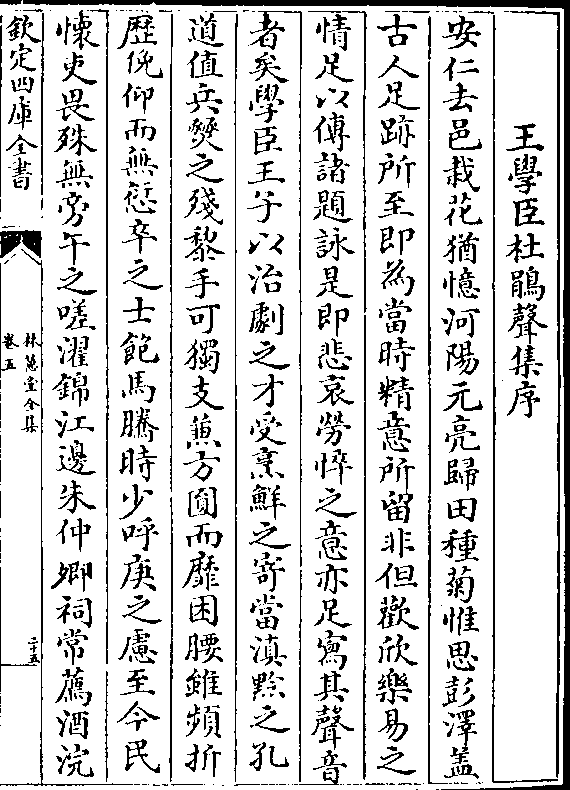 王學臣杜鵑聲集序
安仁去邑栽花猶憶河陽元亮歸田種菊惟思彭澤盖
古人足跡所至即為當時精意所留非但歡欣樂易之
情足以傳諸題詠是即悲哀勞悴之意亦足寫其聲音
者矣學臣王子以治劇之才受烹鮮之寄當滇黔之孔
道值兵燹之殘黎手可獨支兼方圓而靡困腰雖頻折
歷俛仰而無愆卒之士飽馬騰時少呼庚之慮至今民
懷吏畏殊無旁午之嗟濯錦江邊朱仲卿祠常薦酒浣
欽定四庫全書
林蕙堂全集
卷五
二十五